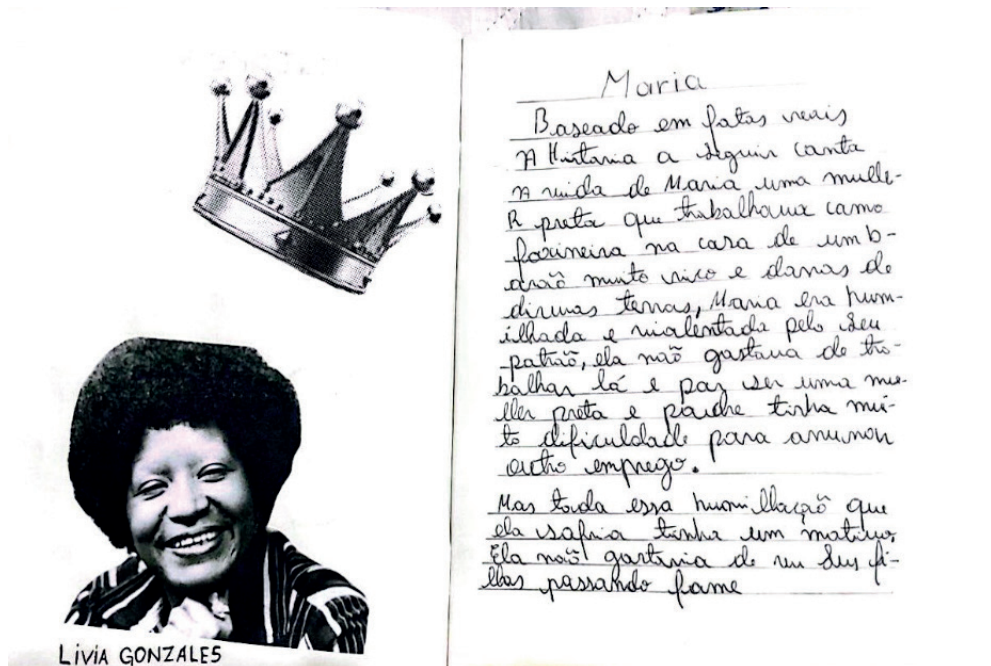 LiViA GONZALES
Maria
Baseado em fatos reais
A História a seguir conta
A vida de Maria uma mulhe-
R preta que trabalhava como
faxineira na casa de um b-
arão muito rico e donas de
diversas terras, Maria era hum-
ilhada e violentada pelo seu
patrão, ela não gostava de tra-
balhar lá e por ser uma mu-
lher preta e pobre tinha mui-
to dificuldade para arrumar
outro emprego.
Mas toda essa humilhação que
ela sofria tinha um motivo,
Ela não gostaria de ver seus fi-
lhos passando fome